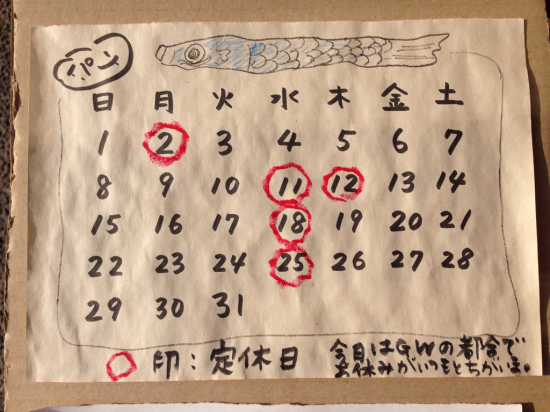 パン
日 月 火 水 木 金 土
1 2 3 4 5 6 7
8 9 10 11 12 13 14
15 16 17 18 19 20 21
22 23 24 25 26 27 28
29 30 31
印：定休日
今月はGWの都合で
お休みがいつもとちがいます。